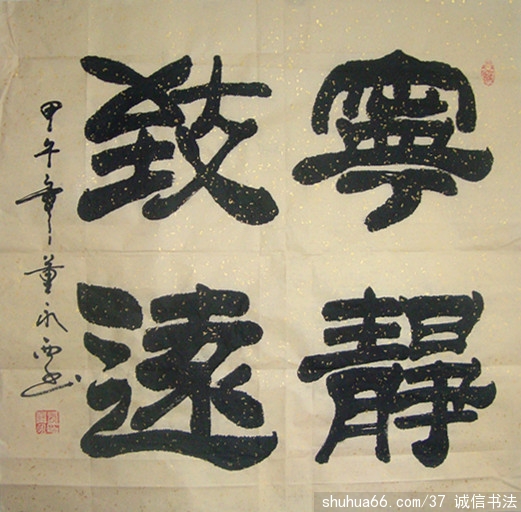 寧靜
致遠
甲午年董永西书
shuhua66.com/37 诚信书法